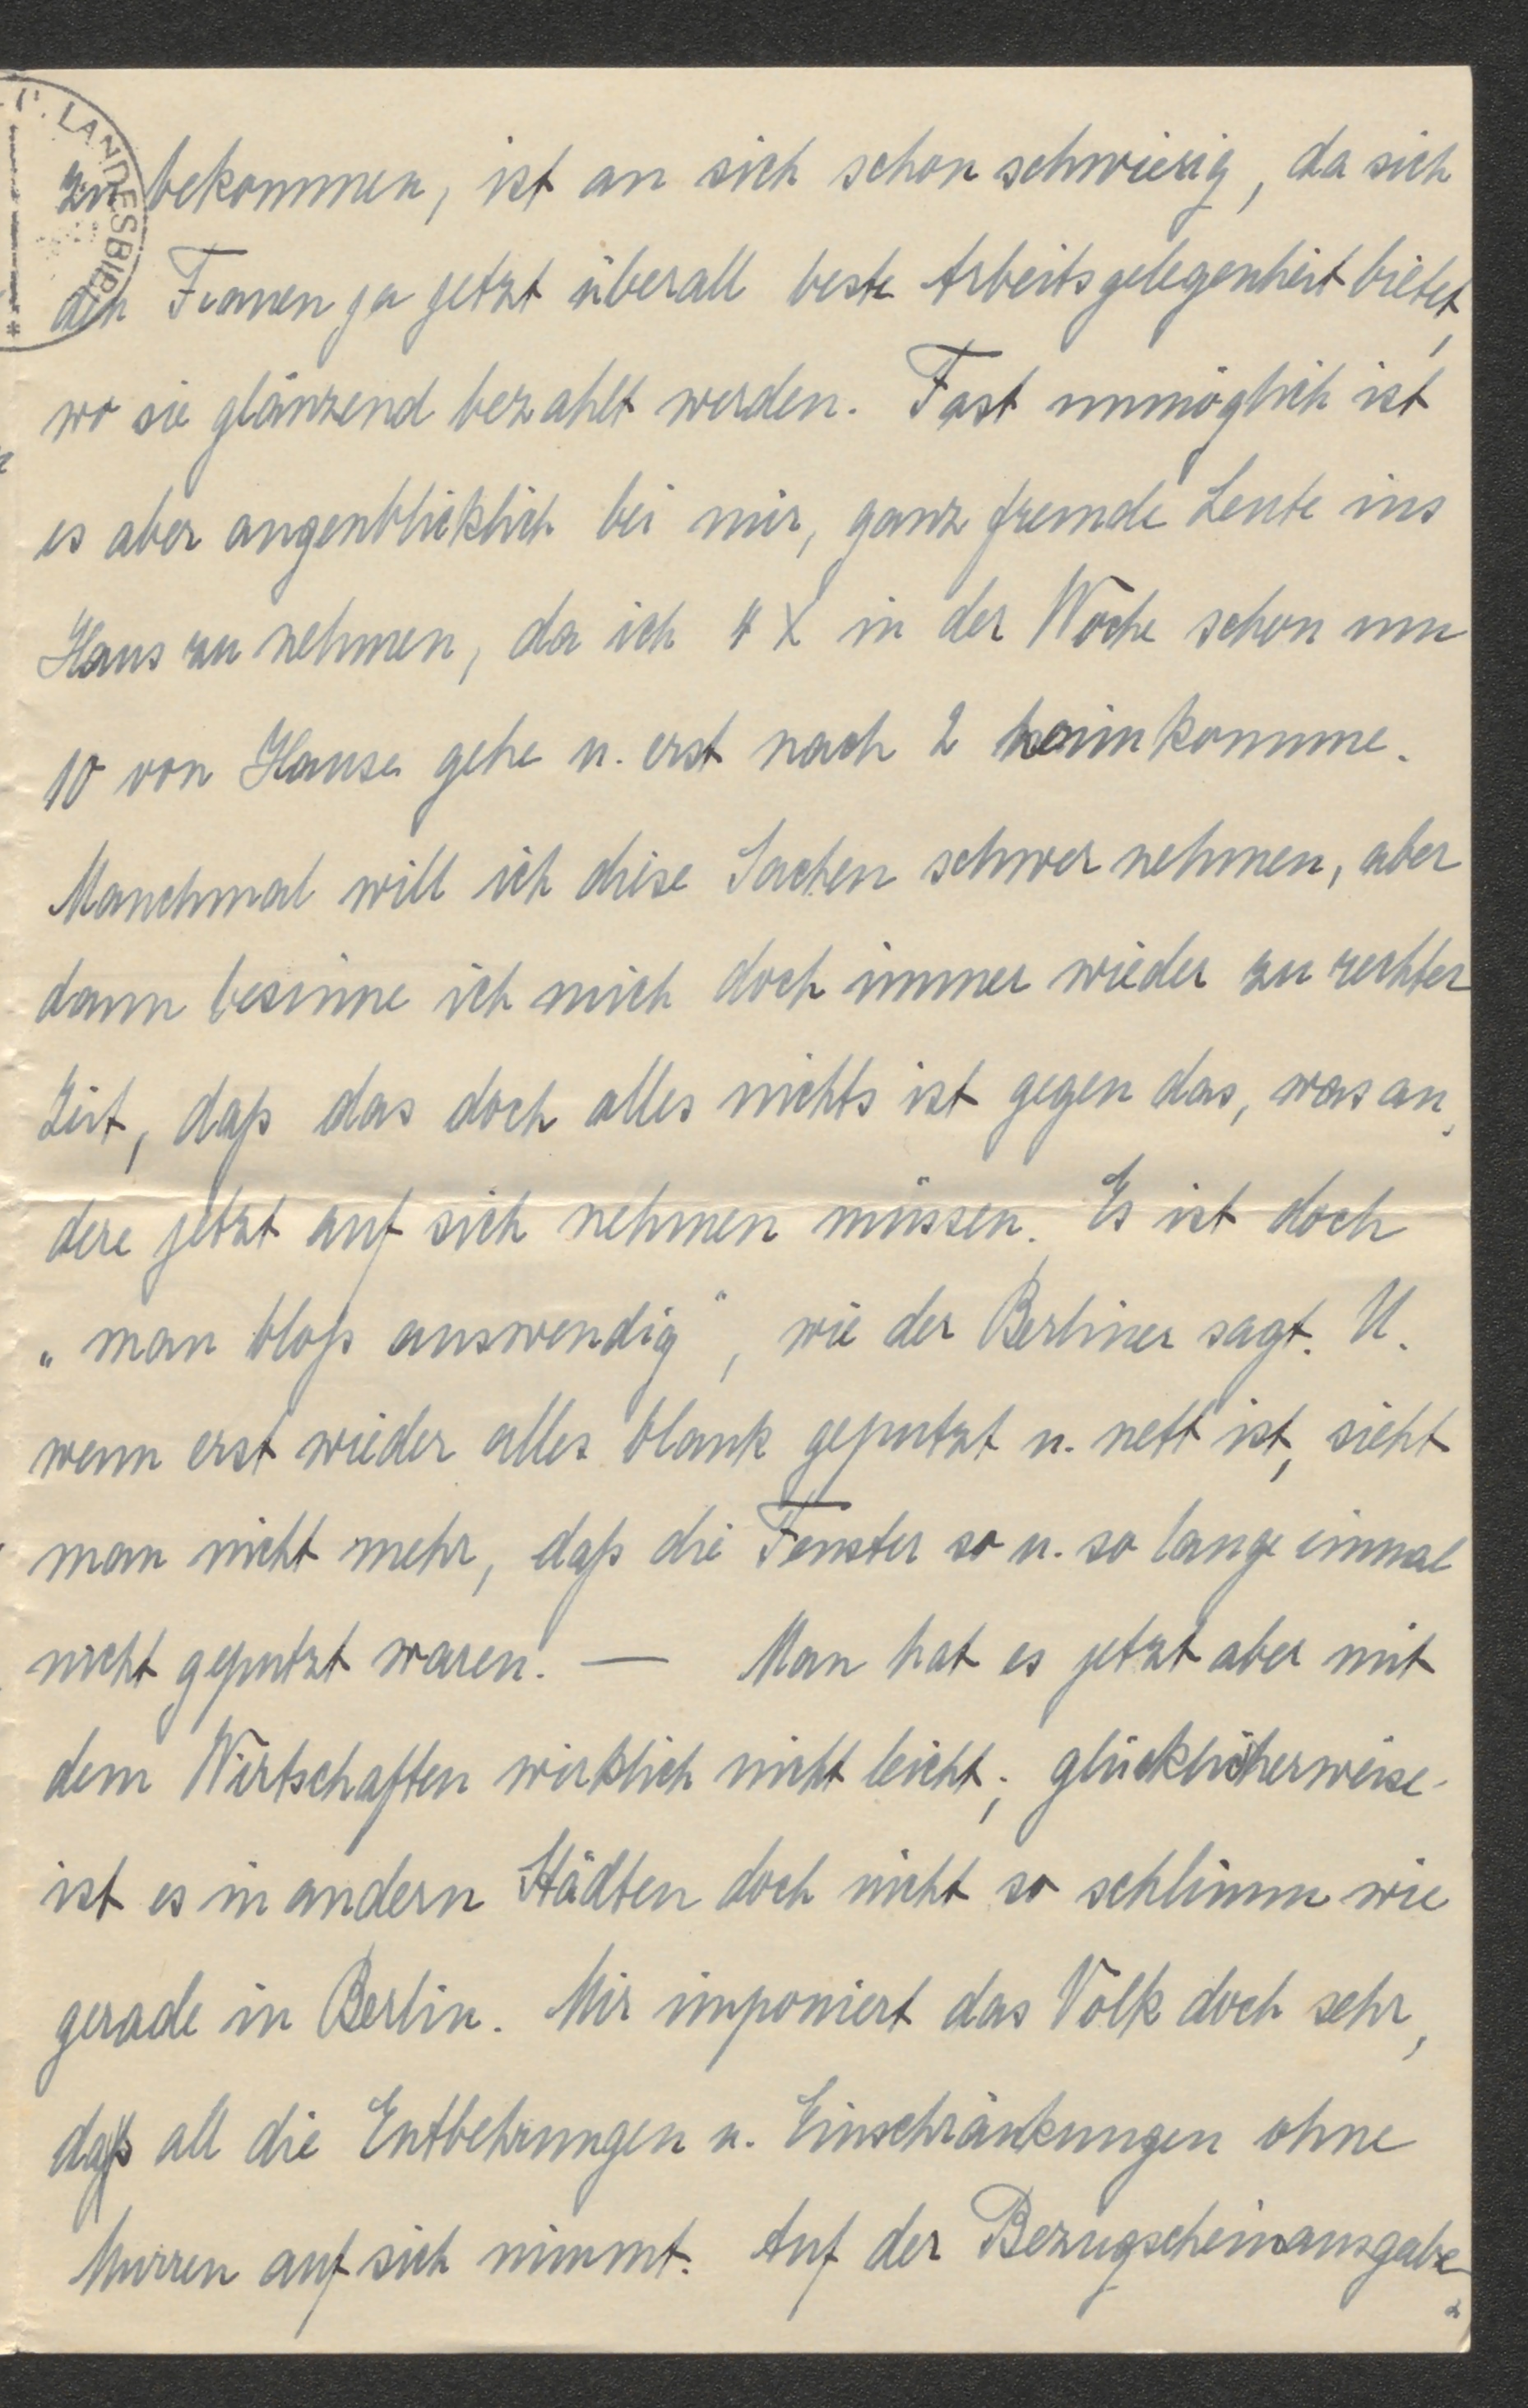 zu bekommen, ist an sich schon schwierig, da sich
den Frauen ja jetzt überall beste Arbeitsgelegenheit bietet,
wo sie glänzend bezahlt werden. Fast unmöglich ist
es aber augenblicklich bei mir, ganz fremde Leute ins
Haus zu nehmen, da ich 4 X in der Woche schon um
10 von Hause gehe u. erst nach 2 heimkomme.
Manchmal will ich diese Sachen schwer nehmen, aber
dann besinne ich mich doch immer wieder zu rechter
Zeit, daß das doch alles nichts ist gegen das, was an-
dere jetzt auf sich nehmen müssen. Es ist doch
„man bloß auswendig", wie der Berliner sagt. U.
wenn erst wieder alles blank geputzt u. nett ist, sieht
man nicht mehr, daß die Fenster so u. so lange einmal
nicht geputzt waren. — Man hat es jetzt aber mit
dem Wirtschaften wirklich nicht leicht; glücklicherweise
ist es in andern Städten doch nicht so schlimm wie
gerade in Berlin. Mir imponiert das Volk doch sehr,
daß all die Entbehrungen u. Einschränkungen ohne
Murren auf sich nimmt. Auf der Bezugscheinausgabe-
LANDESBIBL